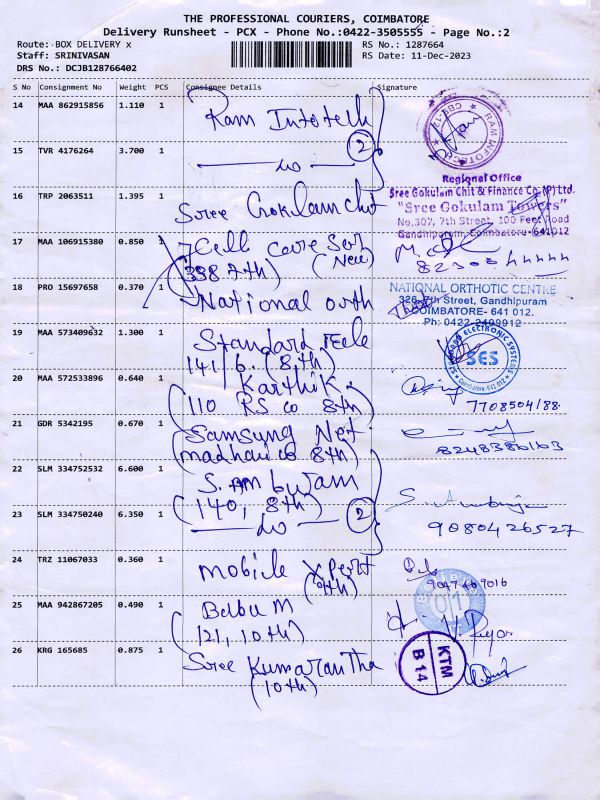 THE PROFESSIONAL COURIERS, COIMBATORE
Delivery Runsheet - PCX - Phone No.:0422-3505555 - Page No.:2
Route: BOX DELIVERY x
RS No.: 1287664
Staff: SRINIVASAN
RS Date: 11-Dec-2023
DRS No.: DCJB128766402
S No Consignment No Weight PCS Consignee Details Signature
14 MAA 862915856 1.110 1 Ram Infotech
RAM INFOTECH
2
15 TVR 4176264 3.700 1
Regional Office
Sree Gokulam Chit & Finance Co. (P) Ltd.
16 TRP 2063511 1.395 1 Sree Gokulam chit
"Sree Gokulam Towers"
No.307, 7th Street, 100 Feet Road
Gandhipuram, Coimbatore-641012
17 MAA 106915380 0.850 1 Cell care Ser
(New)
(338 7th)
18 PRO 15697658 0.370 1 National orth
NATIONAL ORTHOTIC CENTRE
326, 7th Street, Gandhipuram
COIMBATORE- 641 012.
Ph: 0422-2499912
19 MAA 573409632 1.300 1 Standard Tele
141/6. (8th)
ELECTRONIC SYSTEMS
SES
Coimbatore-641 012
20 MAA 572533896 0.640 1 Karthik
(110 RS co 8th)
7708504188
21 GDR 5342195 0.670 1 Samsung Net
(madhav co 8th)
8248386163
22 SLM 334752532 6.600 1 S. Ambujam
(140, 8th)
23 SLM 334750240 6.350 1
2
9080426527
24 TRZ 11067033 0.360 1 mobile xpert
(9th)
9047469016
25 MAA 942867205 0.490 1 Babu M
(121, 10th)
26 KRG 165685 0.875 1 Sree Kumaran Tha
(10th)
KTM
B 14